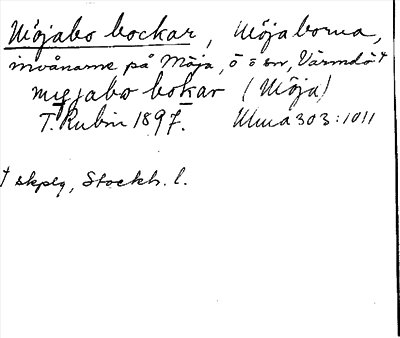 Möjabo bockar, Möjaborna,
invånarne på Möja, ö o sn, Värmdö †
mujabo bokar (Möja)
T. Rubin 1897. Ulma 303:1011
† skplg, Stockh. l.